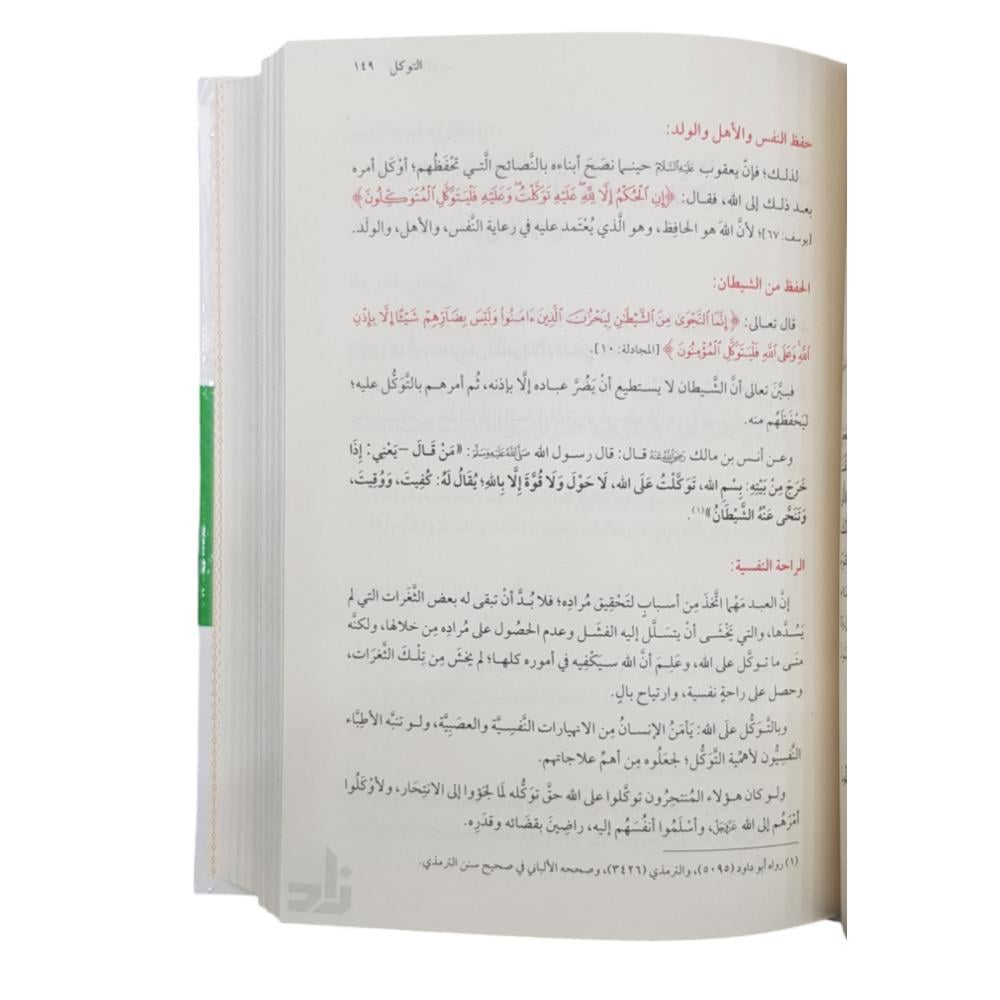 التوكل ١٤٩
حفظ النفس والأهل والولد:
لذلك؛ فإنّ يعقوب عَلَيْهِ السَّلَامُ حينما نصَحَ أبناءه بالنَّصائح الَّتي تحْفَظُهم؛ أوْكَل أمره
بعد ذلك إلى الله، فقال: ﴿إِنِ الْحُكْمُ إِلَّا لِلَّهِ ۖ عَلَيْهِ تَوَكَّلْتُ ۖ وَعَلَيْهِ فَلْيَتَوَكَّلِ الْمُتَوَكِّلُونَ﴾
[يوسف: ٦٧]؛ لأنَّ اللهَ هو الحافِظ، وهو الَّذي يُعْتَمد عليه في رعاية النَّفس، والأهل، والولَد.
الحفظ من الشيطان:
قال تعالى: ﴿إِنَّمَا النَّجْوَىٰ مِنَ الشَّيْطَٰنِ لِيَحْزُنَ الَّذِينَ ءَامَنُوا وَلَيْسَ بِضَآرِّهِمْ شَيْـًٔا إِلَّا بِإِذْنِ
اللَّهِ وَعَلَى اللَّهِ فَلْيَتَوَكَّلِ الْمُؤْمِنُونَ﴾ [المجادلة: ١٠].
فبيَّنَ تعالى أنَّ الشَّيطان لا يستطيع أنْ يَضُرَّ عباده إلَّا بإذنه، ثُم أمرهم بالتَّوَكُّل عليه؛
ليَحْفَظَهُم منه.
وعن أنس بن مالك رَضِيَ اللَّهُ عَنْهُ قال: قال رسول الله صَلَّى اللَّهُ عَلَيْهِ وَسَلَّمَ: «مَنْ قَالَ –يَعْنِي: إِذَا
خَرَجَ مِنْ بَيْتِهِ: بِسْمِ الله، تَوَكَّلْتُ عَلَى الله، لَا حَوْلَ وَلَا قُوَّةَ إِلَّا بِاللهِ؛ يُقَالُ لَهُ: كُفِيتَ، وَوُقِيتَ،
وَتَنَحَّى عَنْهُ الشَّيْطَانُ»(١).
الراحة النفسية:
إنَّ العبد مَهْما اتَّخَذَ مِن أسبابٍ لتَحْقِيق مُرادِه؛ فلا بُدَّ أنْ تبقى له بعض الثَّغَرات التي لم
يَسُدَّها، والتي يَخْشَى أنْ يتسَلَّل إليه الفشَل وعدم الحصُول على مُرادِه مِن خلالها، ولكنَّه
متَى ما توكَّل على الله، وعَلِمَ أنَّ الله سيَكْفِيه في أموره كلها؛ لم يخشَ مِن تِلْكَ الثَّغَرات،
وحصل على راحةٍ نفسية، وارتياح بالٍ.
وبالتَّوَكُّل علَى الله: يَأمَنُ الإنسانُ مِن الانهيارات النَّفْسِيَّة والعصَبِيَّة، ولو تنبَّه الأطِبَّاء
النَّفسِيُّون لأهمِّية التَّوَكُّل؛ لجعَلُوه مِن أهمِّ علاجاتهم.
ولو كان هؤلاء المُنتحِرُون توكَّلوا على الله حقَّ توكُّله لمَا لجَؤوا إلى الانتِحَار، ولأوْكَلُوا
أمْرَهُم إلى الله عَزَّ وَجَلَّ، وأسْلَمُوا أنفُسَهُم إليه، راضِينَ بقضائه وقدَرِه.
(١) رواه أبو داود (٥٠٩٥)، والترمذي (٣٤٢٦)، وصححه الألباني في صحيح سنن الترمذي.
زاد